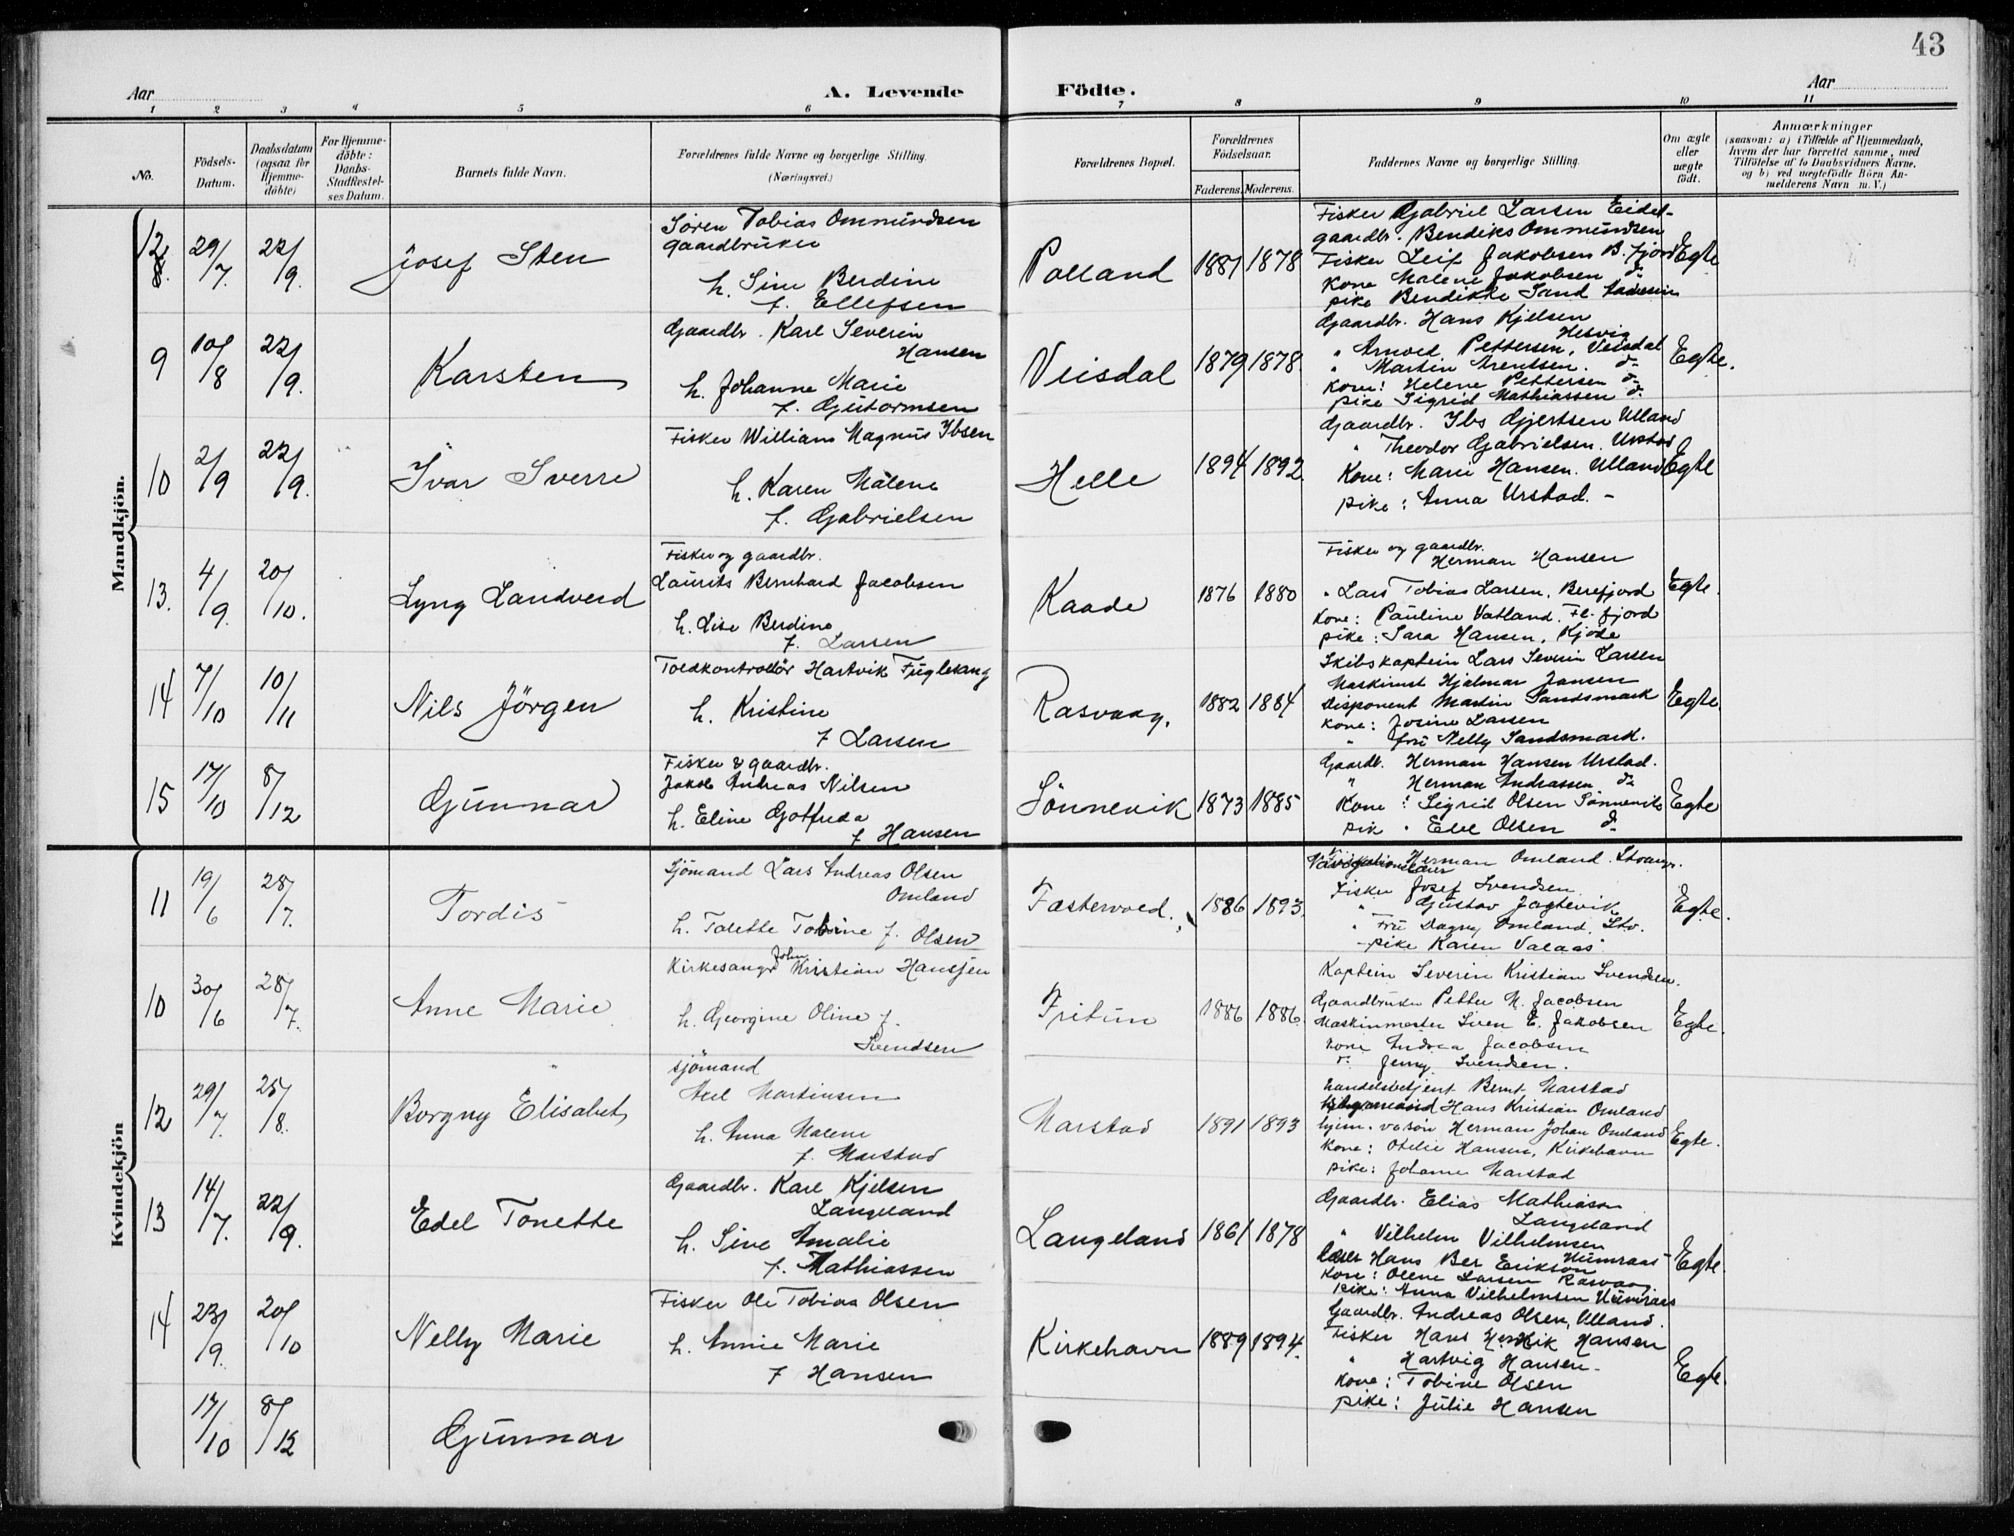 43
Aar
A. Levende Födte.
Aar
1 2 3 4 5 6 7 8 9 10 11
No.
Födsels-
Datum.
Daabsdatum
(ogsaa for
Hjemme-
döbte)
For Hjemme-
döbte:
Daabs-
Stadfæstel-
ses Datum.
Barnets fulde Navn.
Forældrenes fulde Navne og borgerlige Stilling.
(Næringsvei.)
Forældrenes Bopæl.
Forældrenes
Födselsaar.
Faderens. Moderens.
Faddernes Navne og borgerlige Stilling.
Om ægte
eller
uægte
födt.
Anmærkninger
(saasom: a) i Tilfælde af Hjemmedaab,
hvem der har forrettet samme, med
Tilföielse af to Daabsvidners Navne,
og b) ved uægtefödte Börn An-
melderens Navn m. V.)
Mandkjön.
12
8.
29/7. 22/9.
Josef Sten
Sören Tobias Ommundsen
gaardbruker
h. Sine Berdine
f. Ellefsen
Polland
1881 1878
Fisker Gabriel Larsen Eidel-
gaardbr. Bendiks Ommundsen
Fisker Leif Jakobsen B. fjord
Kone Malene Jakobsen do
pike Bendikke Sand
Egte
9
10/8 22/9.
Karsten
Gaardbr. Karl Severin
Hansen
h. Johanne Marie
f. Gutormsen
Veisdal
1879 1878.
Gaardbr. Hans Kjelsen
Hesvig
" Arnold Pettersen, Veisdal
" Martin Arentsen. do
Kone: Helene Pettersen do
pike Sigrid Mathiassen do
Egte.
10
2/9 22/9.
Ivar Sverre
Fisker William Magnus Ibsen
h. Karen Malene
f. Gabrielsen
Helle
1894 1892
Gaardbr. Ibs Gjertsen Ulland
" Theodor Gabrielsen. Urstad
Kone: Marie Hansen. Ulland
pike: Anna Urstad. -
Egte
13.
4/9. 20/10.
Lyng Landverd
Fisker og gaardbr.
Laurits Bernhard Jacobsen
h. Lise Berdine
f. Larsen
Kaade
1876 1880
Fisker og gaardbr.
Herman Hansen
" Lars Tobias Larsen, Berefjord
Kone: Pauline Vatland. Fl. fjord
pike: Sara Hansen, Kjöde
Egte.
14
7/10 10/11
Nils Jörgen
Toldkontrollör Hartvik Fuglevang
h. Kristine
f Larsen
Rasvaag.
1882 1884
Skibskaptein Lars Severin Larsen
Maskinist Hjalmar Jansen
Disponent Martin Sandsmark
Kone: Josine Larsen
" fru Nelly Sandsmark.
Egte.
15
17/10 8/12
Gunnar
Fisker & gaardbr.
Jakob Andreas Nilsen
h. Eline Gotfreda
f Hansen
Sönnevik
1873 1885
Gaardb. Herman Hansen Urstad.
" Herman Andreassen do
Kone: Sigrid Olsen Sönnevik
pik " Elve Olsen do
Egte
Kvindekjön
11
19/6 28/7.
Tordis
Sjömand Lars Andreas Olsen
Omland
h. Talette Tobine f. Olsen
Fastervold.
1886 1893.
Navigationslærer Herman Omland. Stvangr.
Fisker Josef Svendsen
" Gustav Jagtevik
" Fru Dagny Omland, Stv.
- pike Karen Valaas
Egte.
10
30/6 28/7.
Anne Marie
Kirkesangr John Kristian Hanssen
h. Georgine Oline f.
Svendsen
Fritun
1886 1886.
Kaptein Severin Kristian Svendsen.
Gaardbruker Petter M. Jacobsen
Maskinmester Sven E. Jakobsen
Kone Andrea Jacobsen
do Jenny Svendsen.
Egte.
12
29/7. 25/8.
Borgny Elisabet
sjömand
Axel Martinsen
h. Anna Malene
f. Marstad
Marstad
1891 1893
handelsbetjent Bernt Marstad
Hans Kristian Omland
hjem. vo sön Herman Johan Omland
Kone: Otelie Hansen, Kirkehavn
pike: Johanne Marstad
Egte.
13
14/7. 22/9.
Edel Tonette
Gaardbr. Karl Kjelsen
Langeland
h. Sine Amalie
f. Mathiassen
Langeland
1861 1878
Gaardbr. Elias Mathiasen
Langeland
" Vilhelm Vilhelmsen
Hunraas
lærer Hans Ber Erikson
Kone: Olene Larsen Rasvaag
pike: Anna Vilhelmsen Hunraas
Egte.
14
23/9. 20/10
Nelly Marie
Fisker Ole Tobias Olsen
h. Annie Marie
f Hansen
Kirkehavn
1889 1894.
Gaardbr. Andreas Olsen, Ulland.
Fisker Hans Henrik Hansen
" Hartvig Hansen-
Kone: Tobine Olsen
pike: Julie Hansen
Egte.
17/10 8/12
Gunnar